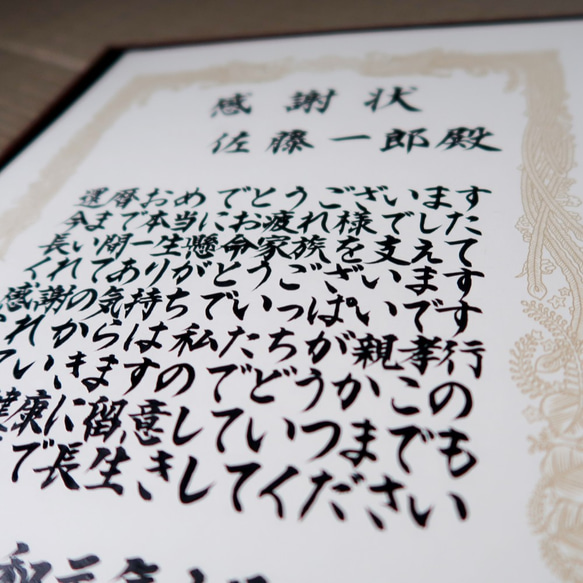 感謝状
佐藤一郎殿
還暦おめでとうございます
今まで本当にお疲れ様でした
長い間一生懸命家族を支えて
くれてありがとうございます
感謝の気持ちでいっぱいです
れからは私たちが親孝行
ていきますのでどうかこの
健康に留意していつまでも
で長生きしてください
和元年